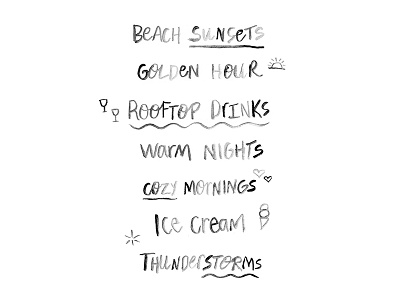 BEACH SUNSETS
GOLDEN HOUR
ROOFTOP DRINKS
WARM NIGHTS
COZY MORNINGS
ICE CREAM
THUNDERSTORMS